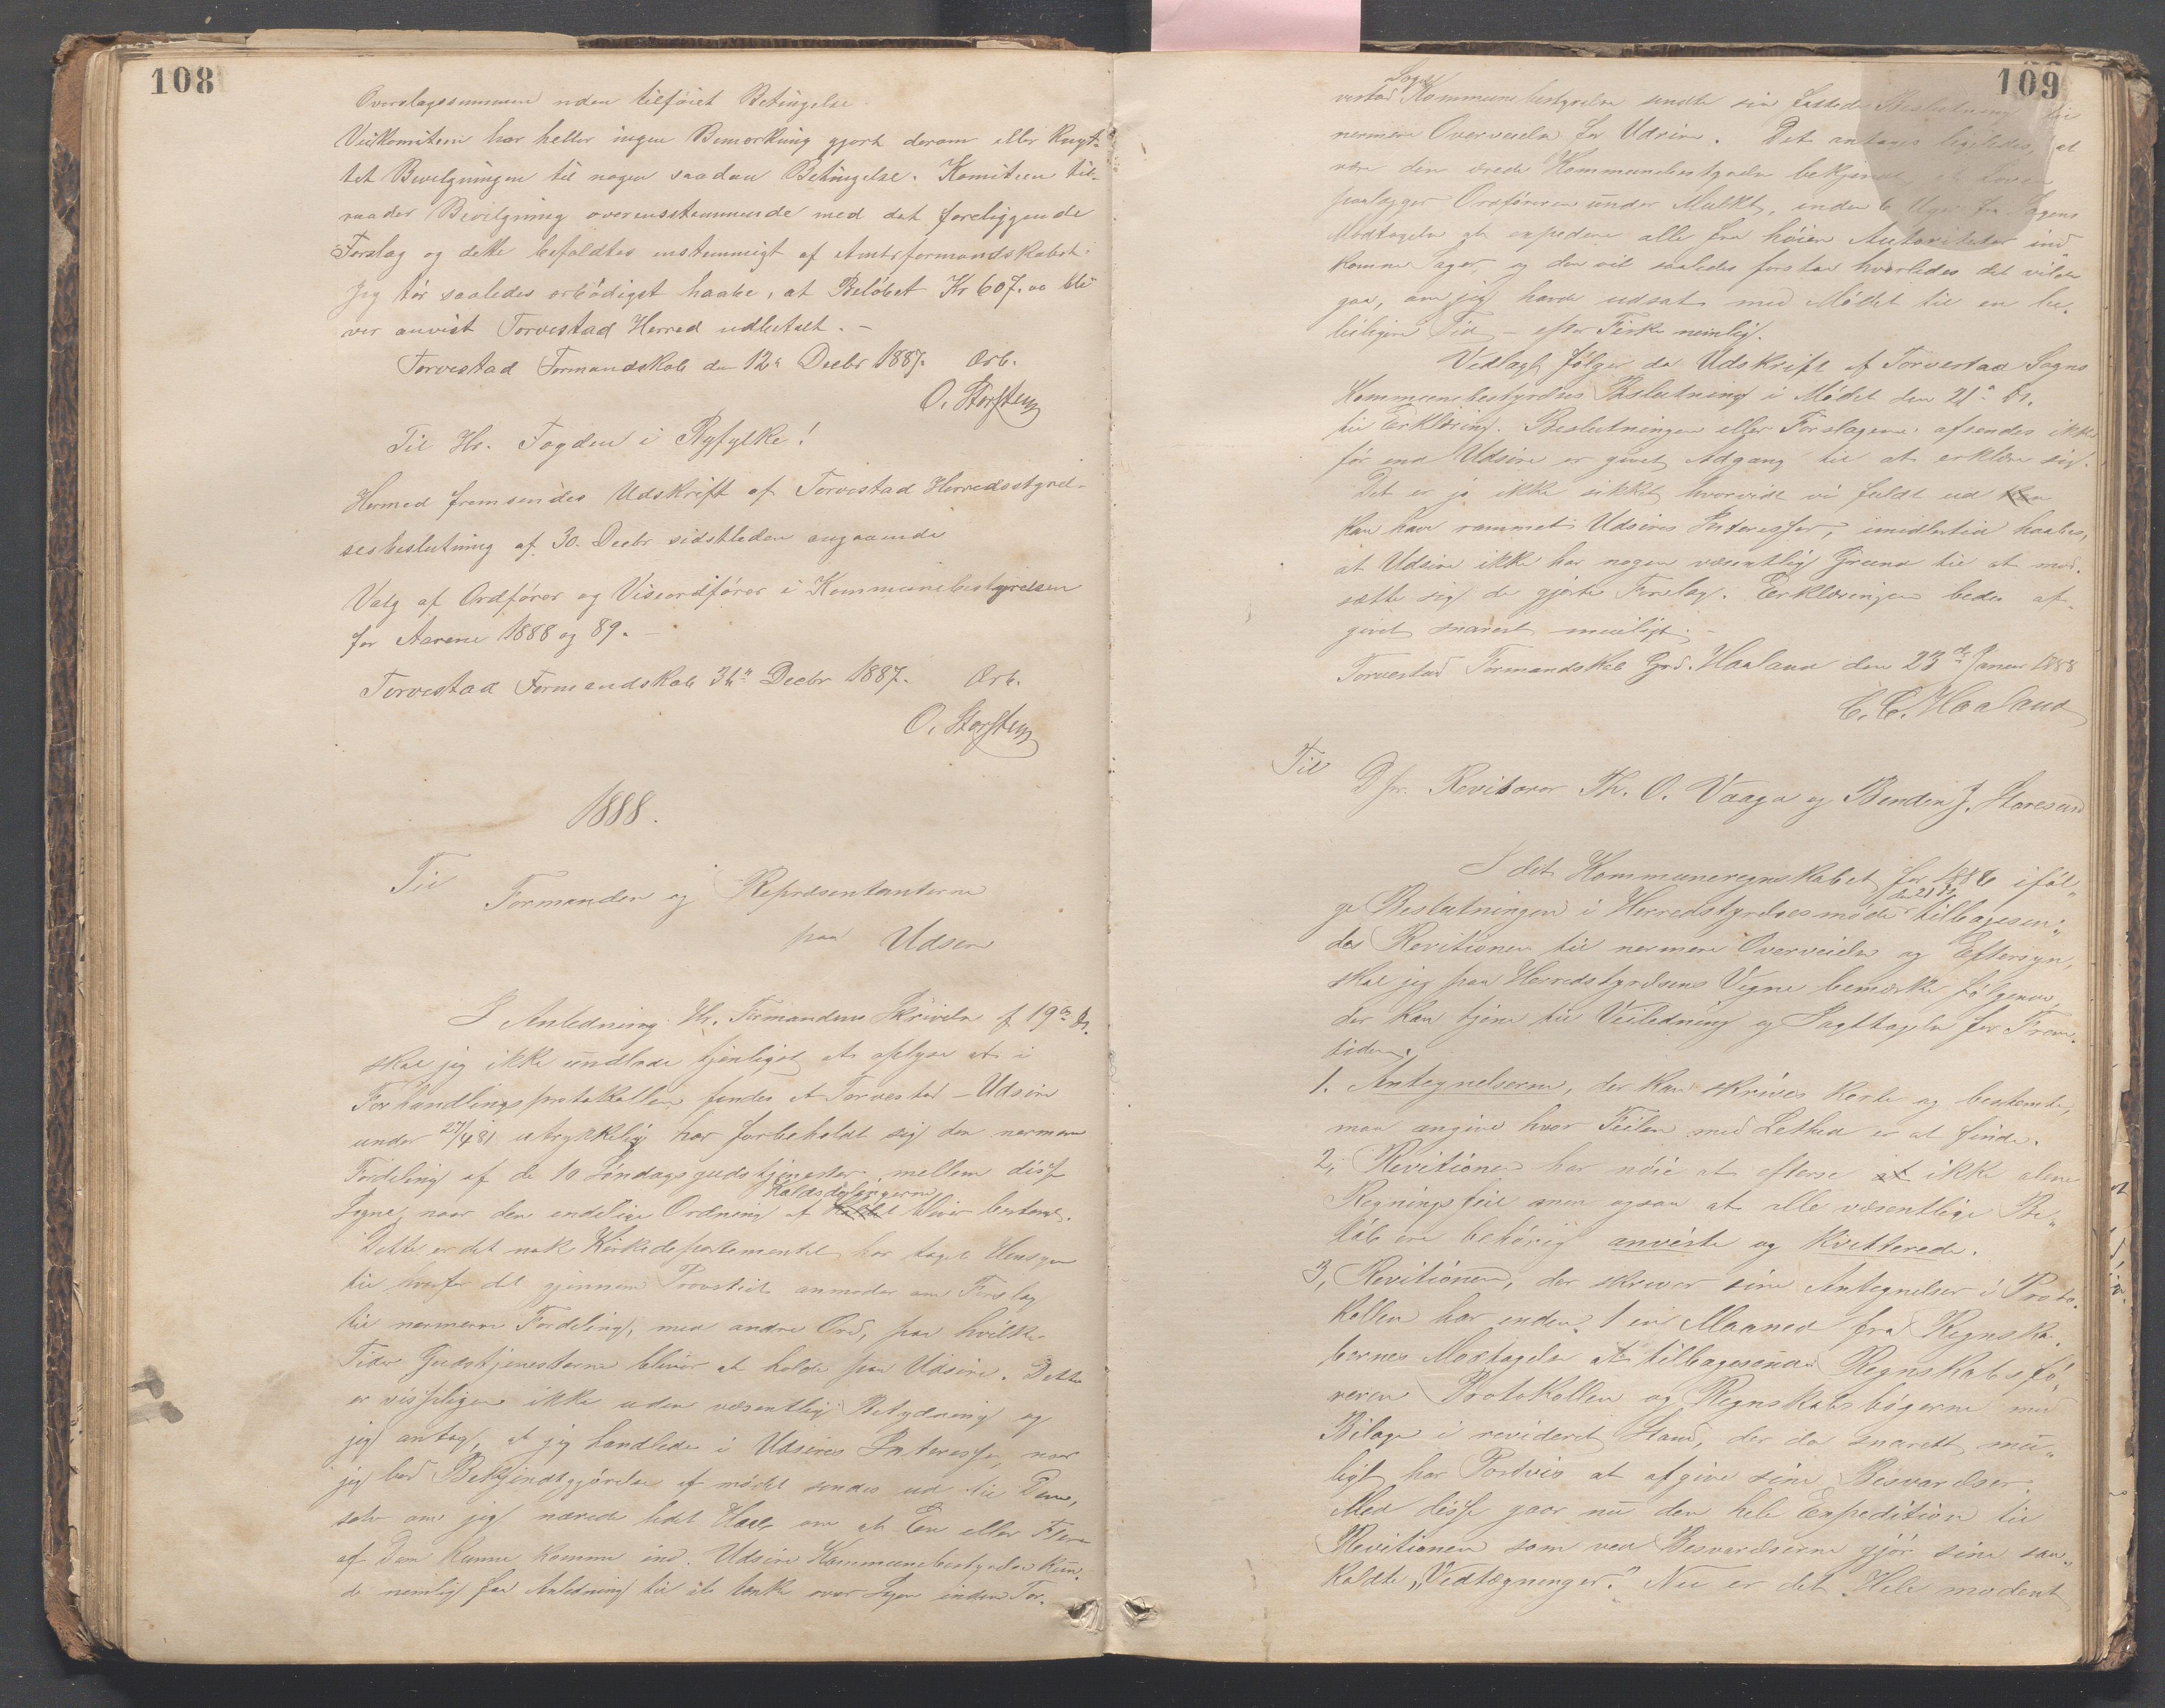 108
Overslagssummen uden tilføiet Betingelse.
Veikomiteen har heller ingen Bemerkning gjort derom eller knyt-
tet Bevilgningen til nogen saadan Betingelse. Komiteen til-
raader Bevilgning overensstemmende med det foreliggende
Forslag og dette bifaldtes enstemmigt af Amtsformandskabet.
Jeg tør saaledes erbödigst haabe, at Belöbet Kr 607.00 bli-
ver anvist Torvestad Herred udbetalt. –
Torvestad Formandskab den 12te Decbr 1887. Ærb.
O. Storsten
Til Hr. Fogden i Ryfylke!
Hermed fremsendes Udskrift af Torvestad Herredsstyrel-
sesbeslutning af 30. Decbr sidstleden angaaende
Valg af Ordfører og Viseordfører i Kommunebestyrelsen
for Aarene 1888 og 89. –
Torvestad Formandskab 31te Decbr 1887. Ærb.
O. Storsten
1888.
Til
Formanden og Repræsentanterne
paa Udsire
I Anledning Hr. Formandens Skrivelse af 19de ds.
skal jeg ikke undlade tjenligst at oplyse at i
Forhandlingsprotokollen findes at Torvestad – Udsire
under 27/4 81 utrykkelig har forbeholdt sig den nermere
Fordeling af de 10 Söndagsgudstjenester mellem disse
Sogne, naar den endelige Ordning af Kaldsdelingerne bliver bestemt.
Dette er det nok Kirkedepartementet har taget Hensyn
til hvorfor det gjennem Provstiet anmoder om Forslag
til nermere Fordeling, med andre Ord, paa hvilke
Tider Gudstjenesterne bliver at holde paa Udsire. Dette
er visseligen ikke uden væsentlig Betydning og
jeg antog, at jeg handlede i Udsires Interesse, naar
jeg bad Bekjendtgjörelse af mödet sendes ud til Dem,
selv om jeg nærede lidt Haab om at Een eller Flere
af Dem kunne komme ind. Udsire Kommunebestyrelse kun-
de nemlig faa Anledning til at tænke over Sagen inden Tor-
109
vestad Sogns Kommunebestyrelse sendte sin fattede Beslutning til
nermere Overveielse for Udsire. Det antages ligeledes, at
være den ærede Kommunebestyrelse bekjendt at Loven
paalægger Ordföreren under Mulkt, inden 6 Uger fra Sagens
Modtagelse at expedere alle fra höiere Autoriteter ind-
komne Sager, og den vil saaledes forstaa hvorledes det vilde
gaa, om jeg havde udsat med Mödet til en be-
leiligere Tid – efter Fisket nemlig.
Vedlagt fölger da Udskrift af Torvestad Sogns
Kommunebestyrelses Beslutning i Mödet den 21de ds.
til Erklæring. Beslutningen eller Forslagene afsendes ikke
för end Udsire er givet Adgang til at erklære sig.
Det er jo ikke sikkert hvorvidt vi fuldt ud
kan have rammet Udsires Interesser, imidlertid haabes,
at Udsire ikke har nogen væsentlig Grund til at mod-
sætte sig de gjorte Forslag. Erklæringen bedes af-
givet snarest mueligt. –
Torvestad Formandskab Grd. Haaland den 23de Januar 1888
C. C. Haaland
Til
D Hr. Revisorer Th. O. Vaaga og Bendix J. Storesund
I det Kommuneregnskabet for 1886 iföl-
ge Beslutningen i Herredstyrelsesmöde den 21 ds. tilbagesen-
des Revitionen til nermere Overveielse og Eftersyn,
skal jeg paa Herredstyrelsens Vegne bemærke fölgende,
der kan tjene til Veiledning og Iagttagelse for Frem-
tiden.
1. Antegnelserne, der kan skrives korte og bestemte,
maa angive hvor Feilen med Lethed er at finde.
2, Revitionen har nöie at efterse ikke alene
Regningsfeil men ogsaa at alle væsentlige Be-
löb ere behörig anviste og kvitterede.
3, Revitionen, der skriver sine Antegnelser i Proto-
kollen har inden 1 en Maaned fra Regnska-
bernes Modtagelse at tilbagesende Regnskabsfö-
reren Protokollen og Regnskabsbögerne med
Bilage i revideret Stand, der da snarest mu-
ligt har Portvis at afgive sine Besvarelser.
Med disse gaar nu den hele Expedition til
Revitionen som ved Besvarelserne gjör sine saa-
kaldte „Vedtegninger." Nu er det Hele modent